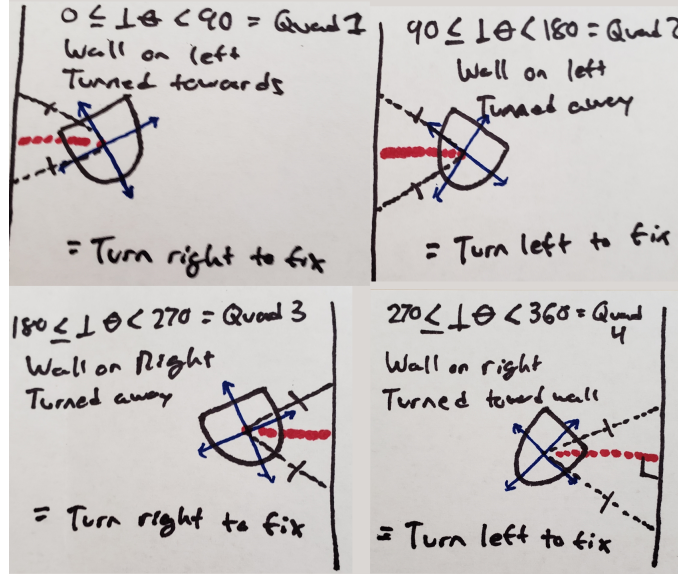 0 ≤ ⊥ θ < 90 = Quad 1
Wall on left
Turned towards
= Turn right to fix
90 ≤ ⊥ θ < 180 = Quad 2
Wall on left
Turned away
= Turn left to fix
180 ≤ ⊥ θ < 270 = Quad 3
Wall on Right
Turned away
= Turn right to fix
270 ≤ ⊥ θ < 360 = Quad
4
Wall on right
Turned toward wall
= Turn left to fix